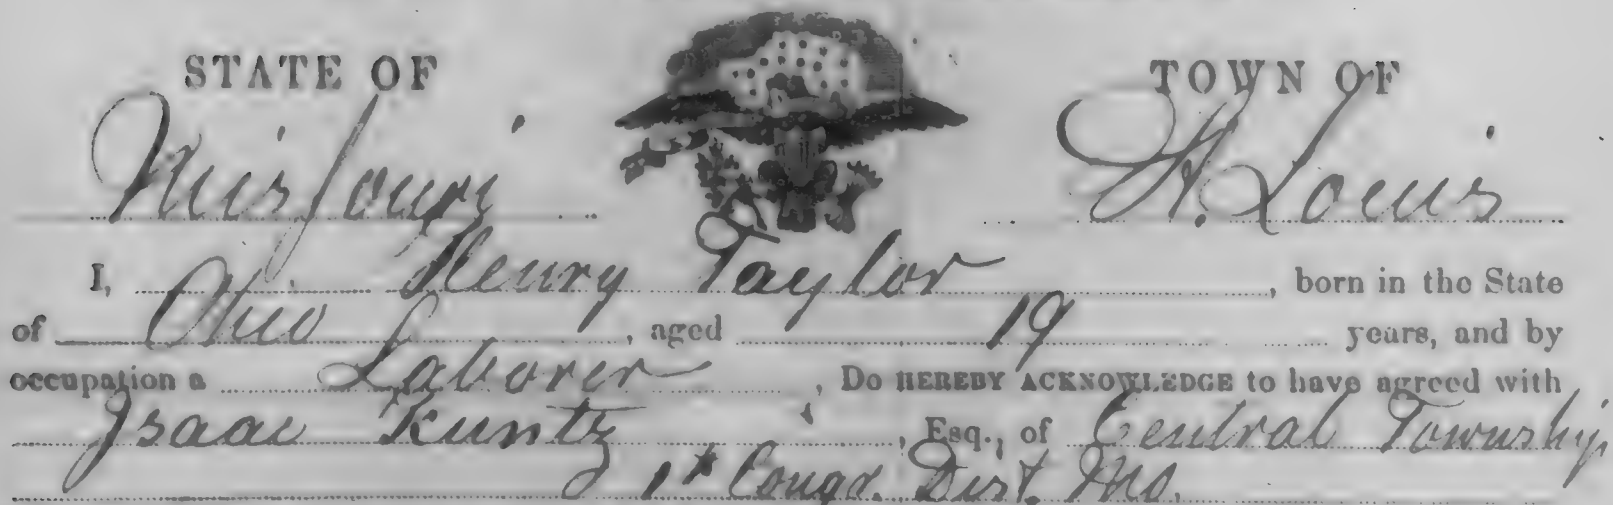 STATE OF TOWN OF
Missouri St. Louis
I, Henry Taylor, born in the State
of Ohio, aged 19 years, and by
occupation a Laborer, Do HEREBY ACKNOWLEDGE to have agreed with
Isaac Kuntz, Esq., of Central Township
1st Congr. Dist. Mo.